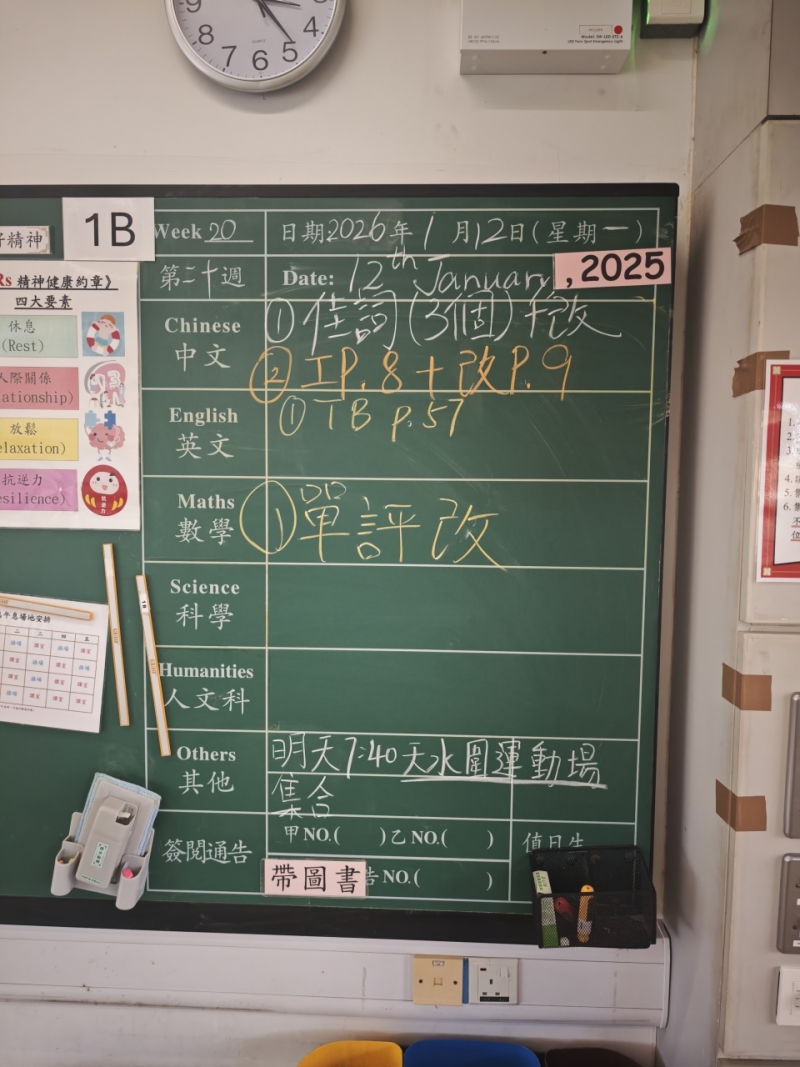 8 7 6 5 4
QUARTZ
LED Twin Spot Emergency Light
精神
1B
Week 20
日期2026年1月12日(星期一)
第二十週
Date: 12th January , 2025
Rs 精神健康約章》
四大要素
休息
(Rest)
人際關係
ationship)
放鬆
elaxation)
抗逆力
esilience)
Chinese
中文
①佳詞(3個)+改
②工P.8+改P.9
English
英文
①TB p.57
Maths
數學
①單評改
Science
科學
Humanities
人文科
Others
其他
明天7:40天水圍運動場
集合
簽閱通告
甲NO.( )乙NO.( )
值日生
帶圖書
告NO.( )
午息場地安排
二 三 四 五